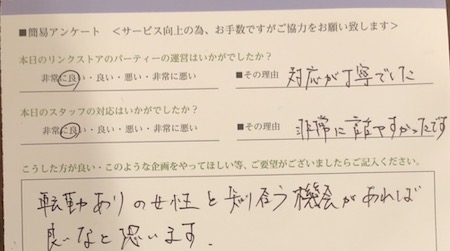 ■簡易アンケート ＜サービス向上の為、お手数ですがご協力をお願い致します＞
本日のリンクストアのパーティーの運営はいかがでしたか？
非常に良い・良い・悪い・非常に悪い ■その理由 対応が丁寧でした
本日のスタッフの対応はいかがでしたか？
非常に良い・良い・悪い・非常に悪い ■その理由 非常に話やすかったです
こうした方が良い・このような企画をやってほしい等、ご要望がございましたらご記入ください。
転勤ありの女性と知り合う機会があれば
良いなと思います。